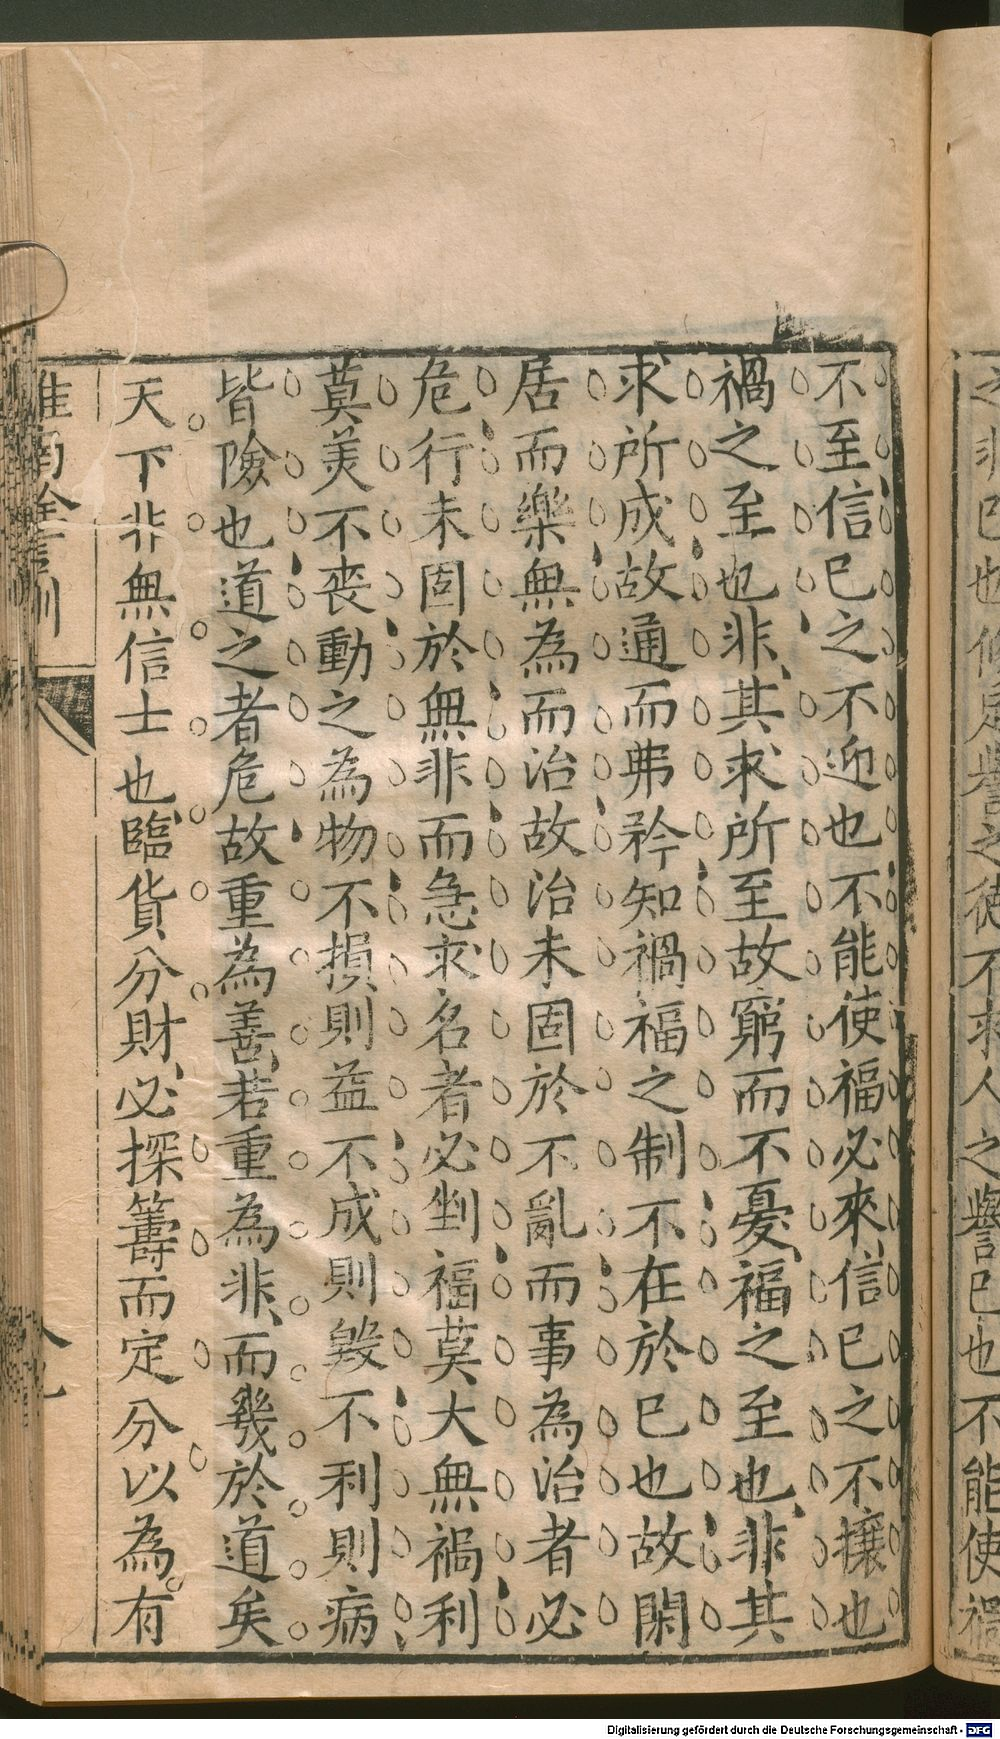 之非已也脩足譽之德不求人之譽已也不能使禍
不至信已之不迎也不能使福必來信已之不攘也
禍之至也非其求所至故窮而不憂福之至也非其
求所成故通而弗矜知禍福之制不在於已也故閑
居而樂無為而治故治未固於不亂而事為治者必
危行未固於無非而急求名者必剉福莫大無禍利
莫羙不丧動之為物不損則益不成則毀不利則病
皆險也道之者危故重為善若重為非而幾於道矣
天下非無信士也臨貨分財必探籌而定分以為有
淮南詮言訓
Digitalisierung gefördert durch die Deutsche Forschungsgemeinschaft - DFG